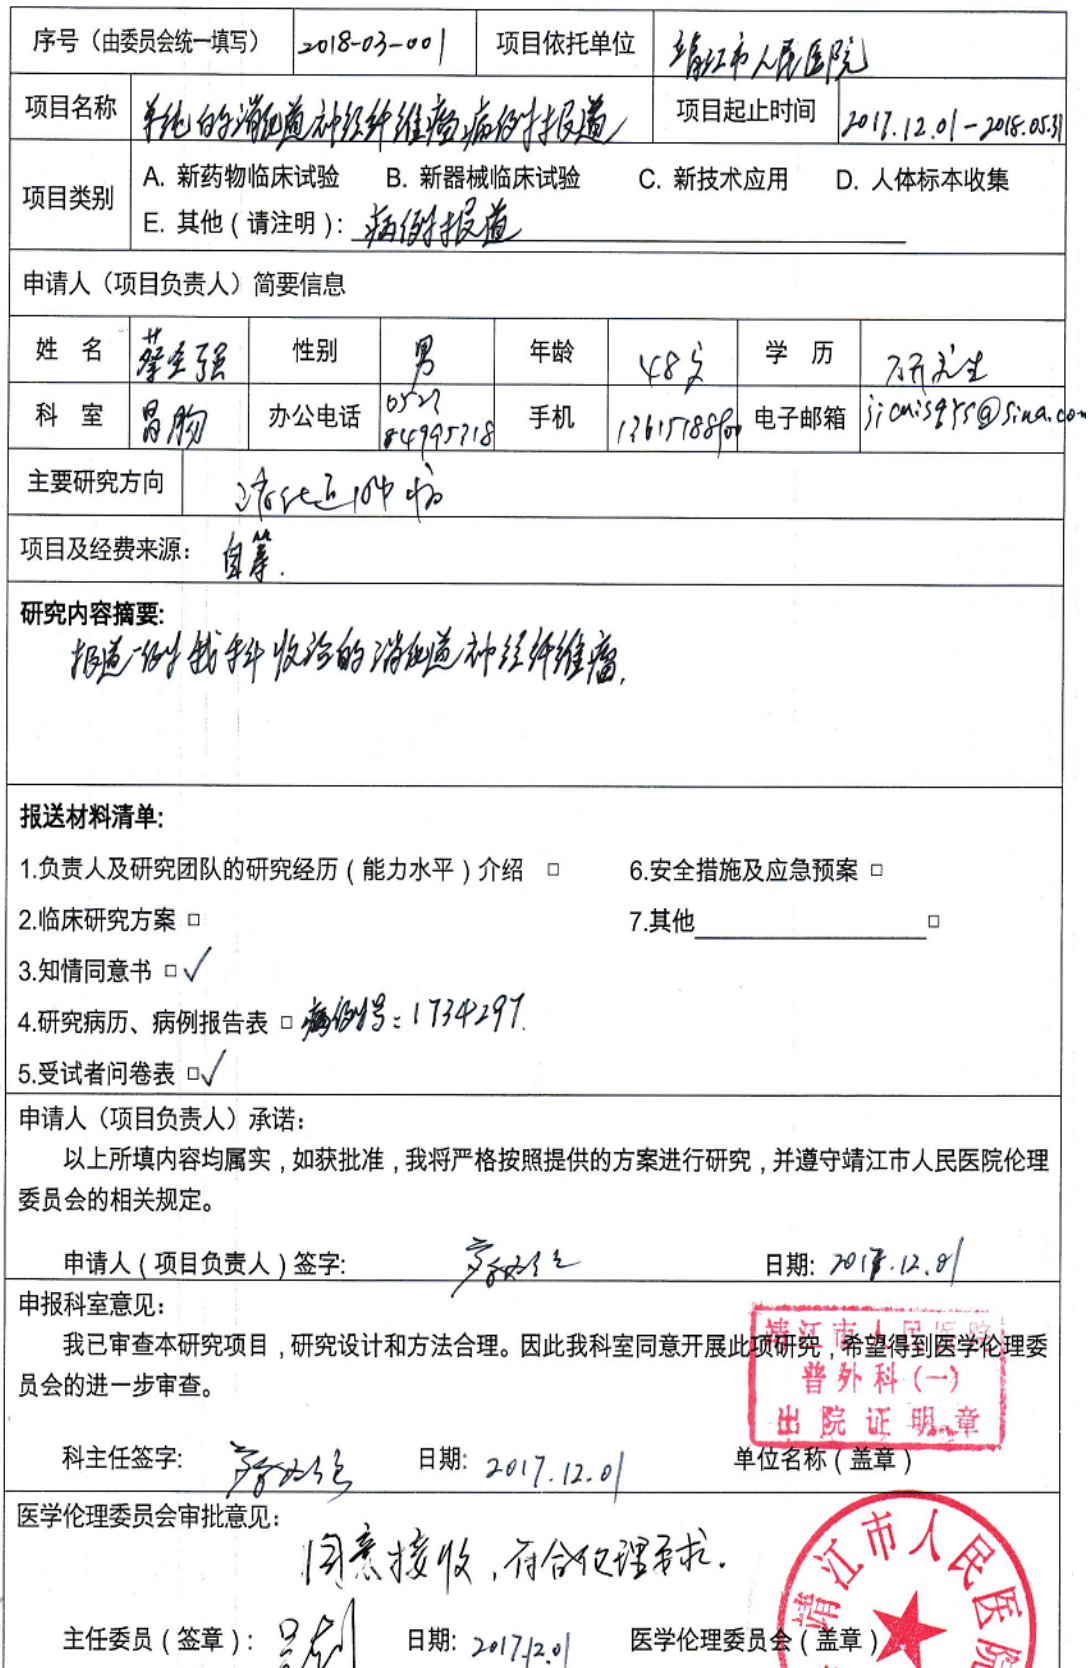 序号（由委员会统一填写） 2018-03-001 项目依托单位 靖江市人民医院
项目名称 单纯的消化道神经纤维瘤病例报道 项目起止时间 2017.12.01-2018.05.31
项目类别 A. 新药物临床试验 B. 新器械临床试验 C. 新技术应用 D. 人体标本收集
E. 其他（请注明）: 病例报道
申请人（项目负责人）简要信息
姓 名 性别 男 年龄 48岁 学 历 研究生
科 室 胃肠 办公电话 0523 84995718 手机 电子邮箱
主要研究方向 消化道肿瘤
项目及经费来源: 自筹.
研究内容摘要:
报道一例我科收治的消化道神经纤维瘤.
报送材料清单:
1.负责人及研究团队的研究经历（能力水平）介绍 □ 6.安全措施及应急预案 □
2.临床研究方案 □ 7.其他 □
3.知情同意书 □√
4.研究病历、病例报告表 □ 病例号: 1734297.
5.受试者问卷表 □√
申请人（项目负责人）承诺:
以上所填内容均属实,如获批准,我将严格按照提供的方案进行研究,并遵守靖江市人民医院伦理
委员会的相关规定。
申请人（项目负责人）签字: 日期: 2017.12.01
申报科室意见:
我已审查本研究项目,研究设计和方法合理。因此我科室同意开展此项研究,希望得到医学伦理委
员会的进一步审查。
靖江市人民医院
普外科(一)
出院证明章
科主任签字: 日期: 2017.12.01 单位名称（盖章）
医学伦理委员会审批意见:
同意接收,符合伦理要求.
主任委员（签章）: 日期: 2017.12.01 医学伦理委员会（盖章）
靖江市人民医院